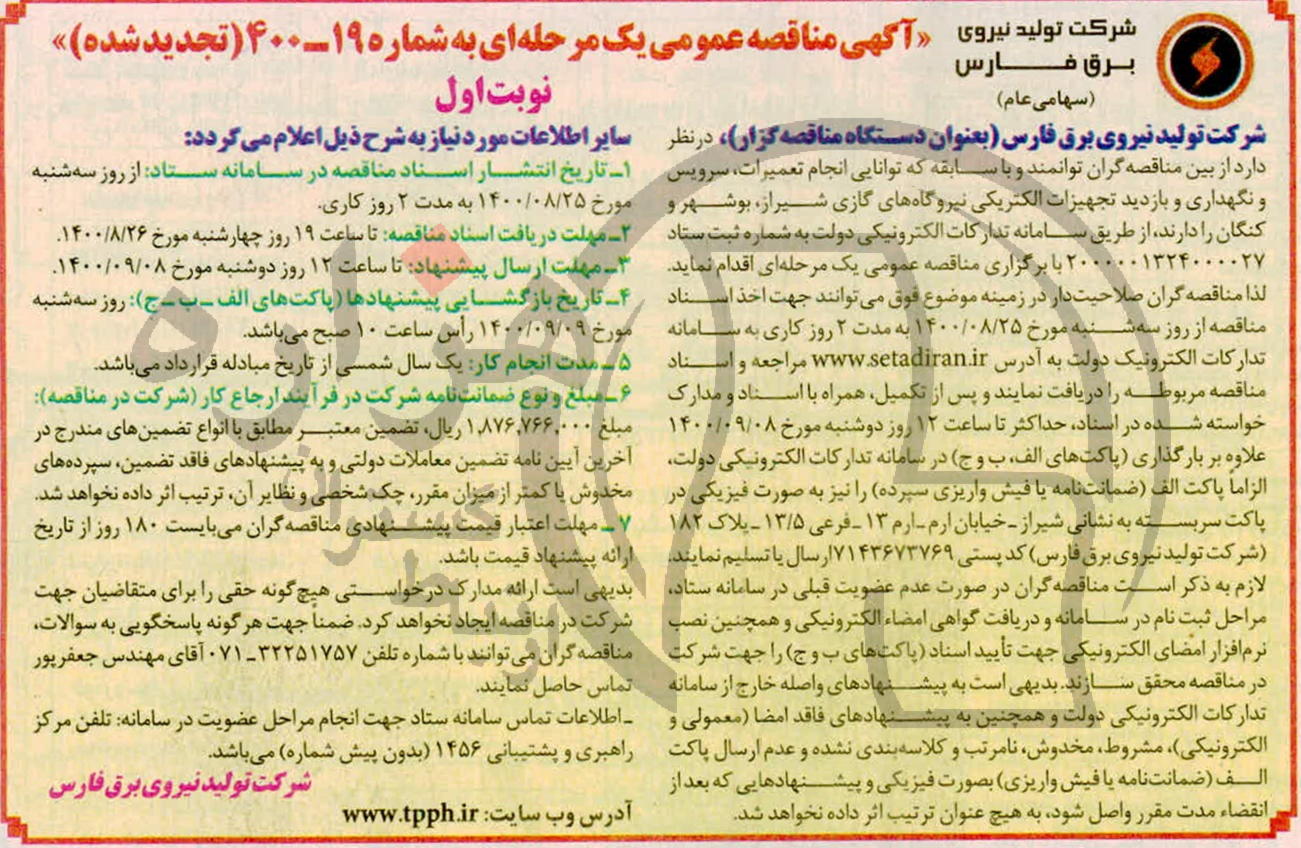 شرکت تولید نیروی
برق فـــارس
(سهامی عام)
«آگهی مناقصه عمومی یک مرحله‌ای به شماره ۱۹ــ۴۰۰ (تجدید شده)»
نوبت اول
شرکت تولید نیروی برق فارس (بعنوان دستگاه مناقصه گزار)، در نظر
دارد از بین مناقصه‌گران توانمند و با سابقه که توانایی انجام تعمیرات، سرویس
و نگهداری و بازدید تجهیزات الکتریکی نیروگاه‌های گازی شیراز، بوشهر و
کنگان را دارند، از طریق سامانه تدارکات الکترونیکی دولت به شماره ثبت ستاد
۲۰۰۰۰۰۱۳۲۴۰۰۰۰۲۷ با برگزاری مناقصه عمومی یک مرحله‌ای اقدام نماید.
لذا مناقصه گران صلاحیت‌دار در زمینه موضوع فوق می‌توانند جهت اخذ اسناد
مناقصه از روز سه‌شنبه مورخ ۱۴۰۰/۰۸/۲۵ به مدت ۲ روز کاری به سامانه
تدارکات الکترونیک دولت به آدرس www.setadiran.ir مراجعه و اسناد
مناقصه مربوطه را دریافت نمایند و پس از تکمیل، همراه با اسناد و مدارک
خواسته شده در اسناد، حداکثر تا ساعت ۱۲ روز دوشنبه مورخ ۱۴۰۰/۰۹/۰۸
علاوه بر بارگذاری (پاکت‌های الف، ب و ج) در سامانه تدارکات الکترونیکی دولت،
الزاماً پاکت الف (ضمانت‌نامه یا فیش واریزی سپرده) را نیز به صورت فیزیکی در
پاکت سربسته به نشانی شیراز ـ خیابان ارم ـ ارم ۱۳ ـ فرعی ۱۳/۵ ـ پلاک ۱۸۲
(شرکت تولید نیروی برق فارس) کد پستی ۷۱۴۳۶۷۳۷۶۹ ارسال یا تسلیم نمایند.
لازم به ذکر است مناقصه‌گران در صورت عدم عضویت قبلی در سامانه ستاد،
مراحل ثبت نام در سامانه و دریافت گواهی امضاء الکترونیکی و همچنین نصب
نرم‌افزار امضای الکترونیکی جهت تأیید اسناد (پاکت‌های ب و ج) را جهت شرکت
در مناقصه محقق سازند. بدیهی است به پیشنهادهای واصله خارج از سامانه
تدارکات الکترونیکی دولت و همچنین به پیشنهادهای فاقد امضا (معمولی و
الکترونیکی)، مشروط، مخدوش، نامرتب و کلاسه‌بندی نشده و عدم ارسال پاکت
الف (ضمانت‌نامه یا فیش واریزی) بصورت فیزیکی و پیشنهادهایی که بعد از
انقضاء مدت مقرر واصل شود، به هیچ عنوان ترتیب اثر داده نخواهد شد.
سایر اطلاعات مورد نیاز به شرح ذیل اعلام می‌گردد:
۱ــ تاریخ انتشار اسناد مناقصه در سامانه ستاد: از روز سه‌شنبه
مورخ ۱۴۰۰/۰۸/۲۵ به مدت ۲ روز کاری.
۲ــ مهلت دریافت اسناد مناقصه: تا ساعت ۱۹ روز چهارشنبه مورخ ۱۴۰۰/۸/۲۶.
۳ــ مهلت ارسال پیشنهاد: تا ساعت ۱۲ روز دوشنبه مورخ ۱۴۰۰/۰۹/۰۸.
۴ــ تاریخ بازگشایی پیشنهادها (پاکت‌های الف ـ ب ـ ج): روز سه‌شنبه
مورخ ۱۴۰۰/۰۹/۰۹ رأس ساعت ۱۰ صبح می‌باشد.
۵ ــ مدت انجام کار: یک سال شمسی از تاریخ مبادله قرارداد می‌باشد.
۶ــ مبلغ و نوع ضمانت‌نامه شرکت در فرآیند ارجاع کار (شرکت در مناقصه):
مبلغ ۱,۸۷۶,۷۶۶,۰۰۰ ریال، تضمین معتبر مطابق با انواع تضمین‌های مندرج در
آخرین آیین نامه تضمین معاملات دولتی و به پیشنهادهای فاقد تضمین، سپرده‌های
مخدوش یا کمتر از میزان مقرر، چک شخصی و نظایر آن، ترتیب اثر داده نخواهد شد.
۷ ــ مهلت اعتبار قیمت پیشنهادی مناقصه‌گران می‌بایست ۱۸۰ روز از تاریخ
ارائه پیشنهاد قیمت باشد.
بدیهی است ارائه مدارک درخواستی هیچ‌گونه حقی را برای متقاضیان جهت
شرکت در مناقصه ایجاد نخواهد کرد. ضمناً جهت هر گونه پاسخگویی به سوالات،
مناقصه‌گران می‌توانند با شماره تلفن ۳۲۲۵۱۷۵۷ـ۰۷۱ آقای مهندس جعفرپور
تماس حاصل نمایند.
ـ اطلاعات تماس سامانه ستاد جهت انجام مراحل عضویت در سامانه: تلفن مرکز
راهبری و پشتیبانی ۱۴۵۶ (بدون پیش شماره) می‌باشد.
شرکت تولید نیروی برق فارس
آدرس وب سایت: www.tpph.ir
هزاره